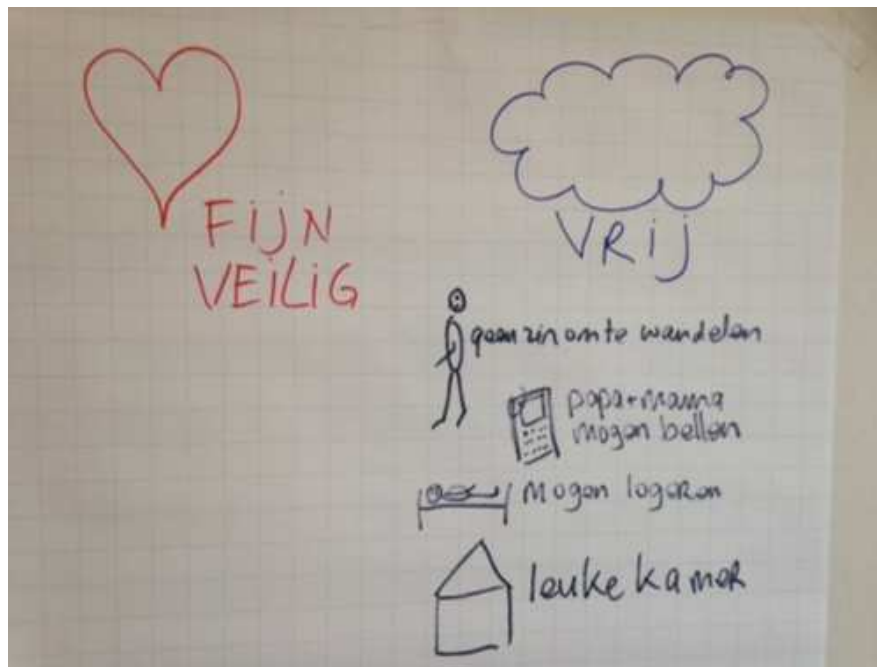 FIJN
VEILIG
VRIJ
geen zin om te wandelen
papa+mama
mogen bellen
mogen logeren
leuke kamer